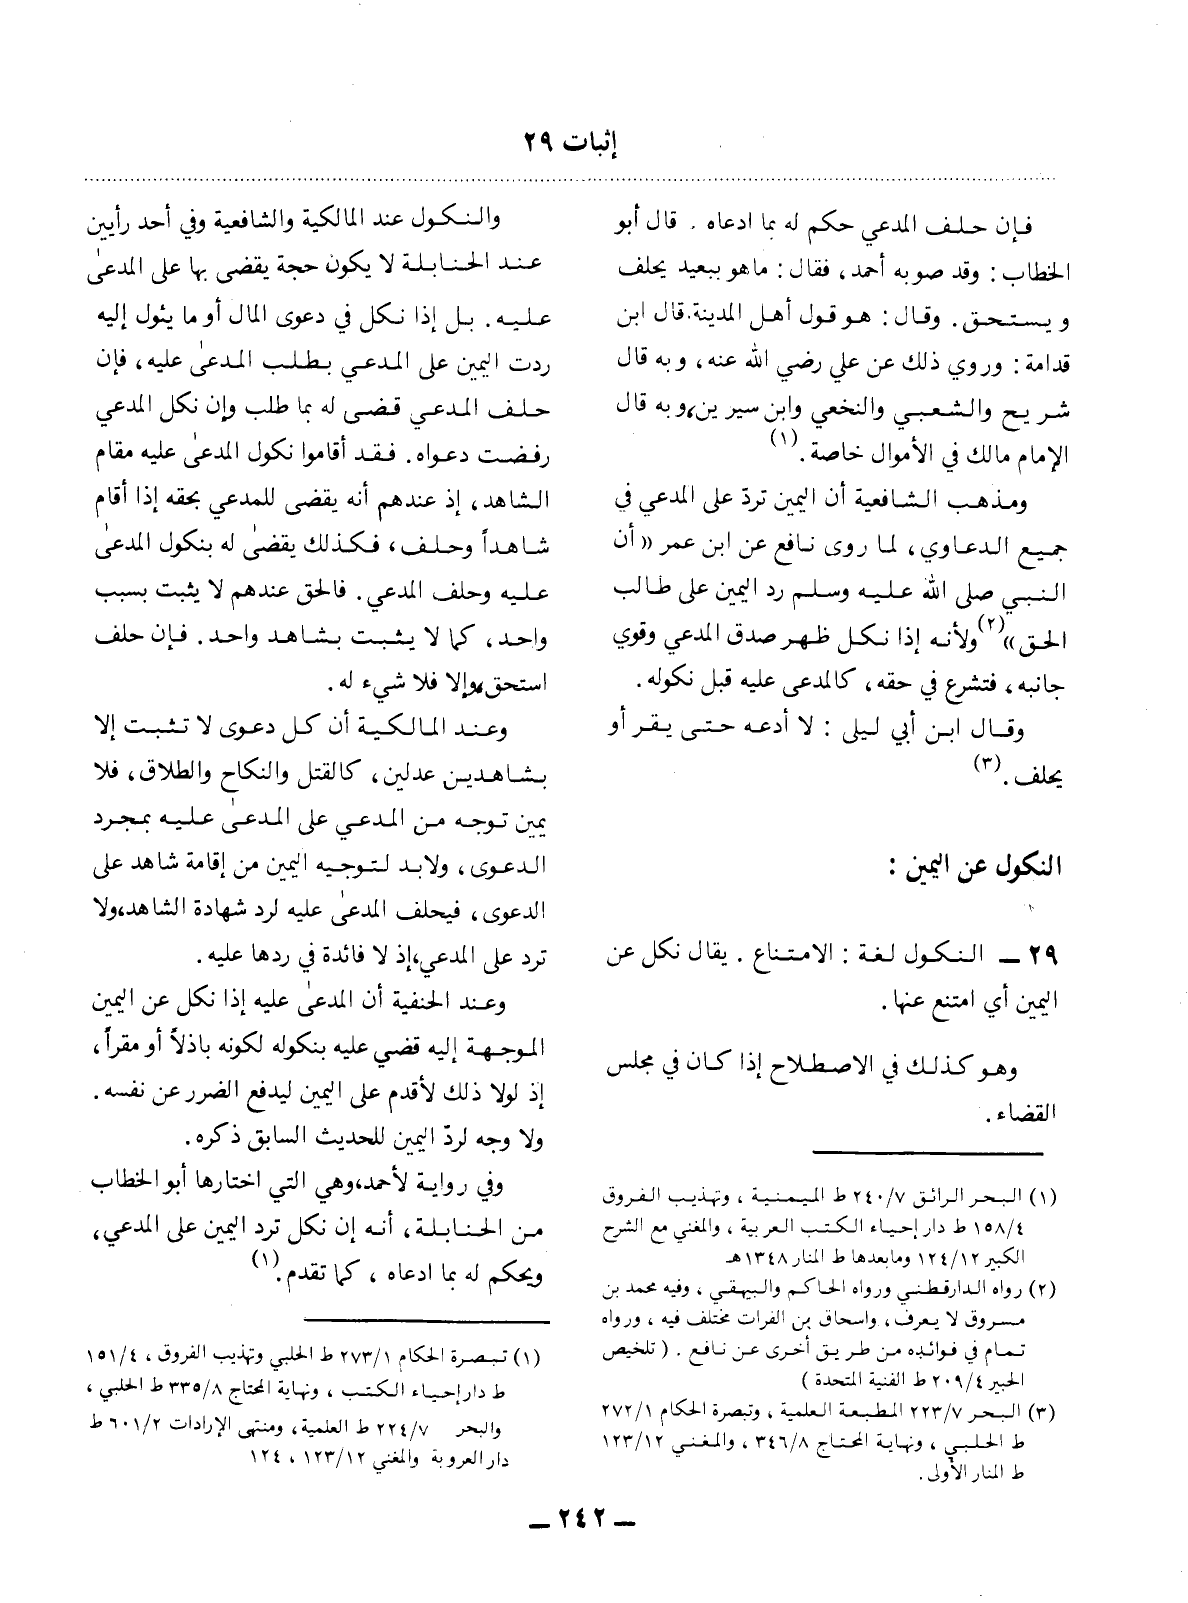 إثبات ٢٩
فإن حلف المدعي حكم له بما ادعاه . قال أبو
الخطاب : وقد صوبه أحمد ، فقال : ماهو ببعيد يحلف
ويستحق . وقال : هو قول أهل المدينة . قال ابن
قدامة : وروي ذلك عن علي رضي الله عنه ، وبه قال
شريح والشعبي والنخعي وابن سيرين ، وبه قال
الإمام مالك في الأموال خاصة . (١)
ومذهب الشافعية أن اليمين تردّ على المدعي في
جميع الدعاوي ، لما روى نافع عن ابن عمر « أن
النبي صلى الله عليه وسلم رد اليمين على طالب
الحق » (٢) ولأنه إذا نكل ظهر صدق المدعي وقوي
جانبه ، فتشرع في حقه ، كالمدعى عليه قبل نكوله .
وقال ابن أبي ليلى : لا أدعه حتى يقر أو
يحلف . (٣)
النكول عن اليمين :
٢٩ ــ النكول لغة : الامتناع . يقال نكل عن
اليمين أي امتنع عنها .
وهو كذلك في الاصطلاح إذا كان في مجلس
القضاء .
(١) البحر الرائق ٢٤٠/٧ ط الميمنية ، وتهذيب الفروق
١٥٨/٤ ط دار إحياء الكتب العربية ، والمغني مع الشرح
الكبير ١٢٤/١٢ ومابعدها ط المنار ١٣٤٨ هـ
(٢) رواه الدارقطني ورواه الحاكم والبيهقي ، وفيه محمد بن
مسروق لا يعرف ، واسحاق بن الفرات مختلف فيه ، ورواه
تمام في فوائده من طريق أخرى عن نافع . ( تلخيص
الحبير ٢٠٩/٤ ط الفنية المتحدة )
(٣) البحر ٢٢٣/٧ المطبعة العلمية ، وتبصرة الحكام ٢٧٢/١
ط الحلبي ، ونهاية المحتاج ٣٤٦/٨ ، والمغني ١٢٣/١٢
ط المنار الأولى .
والنكول عند المالكية والشافعية وفي أحد رأيين
عند الحنابلة لا يكون حجة يقضى بها على المدعىٰ
عليه . بل إذا نكل في دعوى المال أو ما يئول إليه
ردت اليمين على المدعي بطلب المدعىٰ عليه ، فإن
حلف المدعي قضى له بما طلب وإن نكل المدعي
رفضت دعواه . فقد أقاموا نكول المدعىٰ عليه مقام
الشاهد ، إذ عندهم أنه يقضى للمدعي بحقه إذا أقام
شاهداً وحلف ، فكذلك يقضىٰ له بنكول المدعىٰ
عليه وحلف المدعي . فالحق عندهم لا يثبت بسبب
واحد ، كما لا يثبت بشاهد واحد . فإن حلف
استحق ، وإلا فلا شيء له .
وعند المالكية أن كل دعوى لا تثبت إلا
بشاهدين عدلين ، كالقتل والنكاح والطلاق ، فلا
يمين توجه من المدعي على المدعىٰ عليه بمجرد
الدعوى ، ولابد لتوجيه اليمين من إقامة شاهد على
الدعوى ، فيحلف المدعىٰ عليه لرد شهادة الشاهد ، ولا
ترد على المدعي ، إذ لا فائدة في ردها عليه .
وعند الحنفية أن المدعىٰ عليه إذا نكل عن اليمين
الموجهة إليه قضي عليه بنكوله لكونه باذلاً أو مقراً ،
إذ لولا ذلك لأقدم على اليمين ليدفع الضرر عن نفسه .
ولا وجه لردّ اليمين للحديث السابق ذكره .
وفي رواية لأحمد ، وهي التي اختارها أبو الخطاب
من الحنابلة ، أنه إن نكل ترد اليمين على المدعي ،
ويحكم له بما ادعاه ، كما تقدم . (١)
(١) تبصرة الحكام ٢٧٣/١ ط الحلبي وتهذيب الفروق ، ١٥١/٤
ط دار إحياء الكتب ، ونهاية المحتاج ٣٣٥/٨ ط الحلبي ،
والبحر ٢٢٤/٧ ط العلمية ، ومنتهى الإرادات ٦٠١/٢ ط
دار العروبة والمغني ١٢٣/١٢ ، ١٢٤
ــ ٢٤٢ ــ